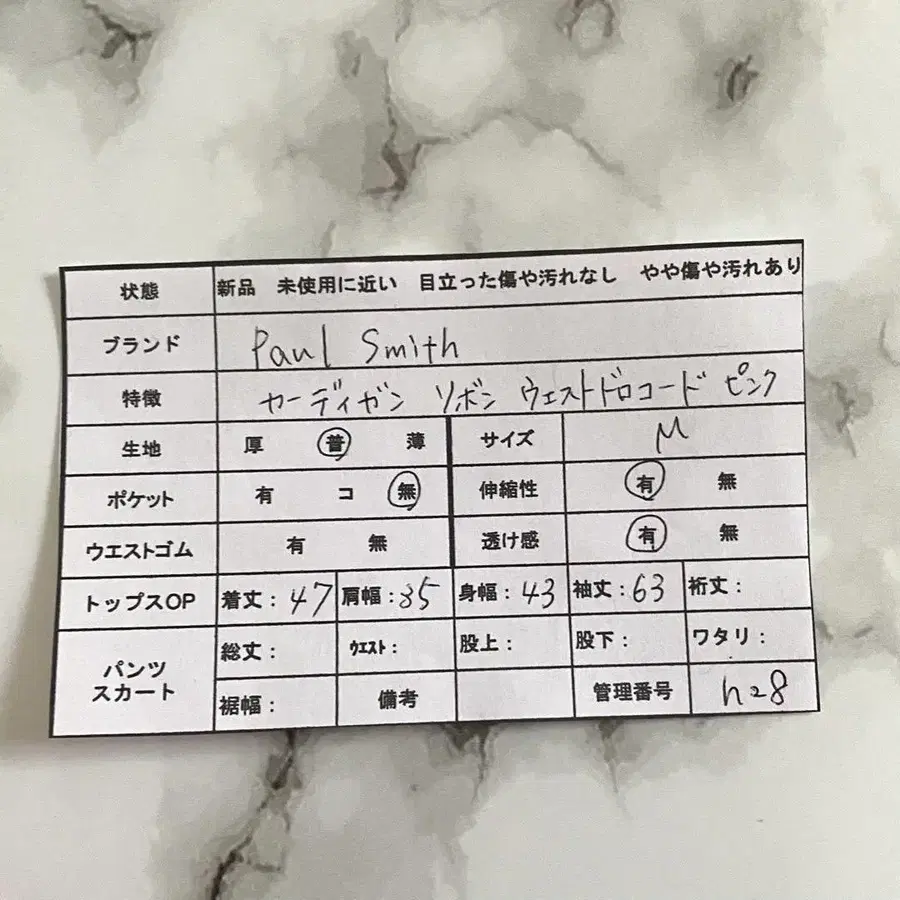 状態 新品 未使用に近い 目立った傷や汚れなし やや傷や汚れあり
ブランド Paul Smith
特徴 カーディガン リボン ウエストドロコード ピンク
生地 厚 普 薄 サイズ M
ポケット 有 コ 無 伸縮性 有 無
ウエストゴム 有 無 透け感 有 無
トップスOP 着丈：47 肩幅：35 身幅：43 袖丈：63 裄丈：
パンツ
スカート
総丈： ｳｴｽﾄ： 股上： 股下： ワタリ：
裾幅： 備考 管理番号 h28